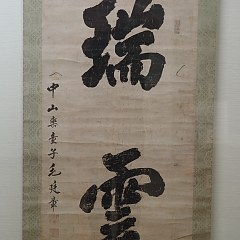 瑞雲
中山樂童子毛廷